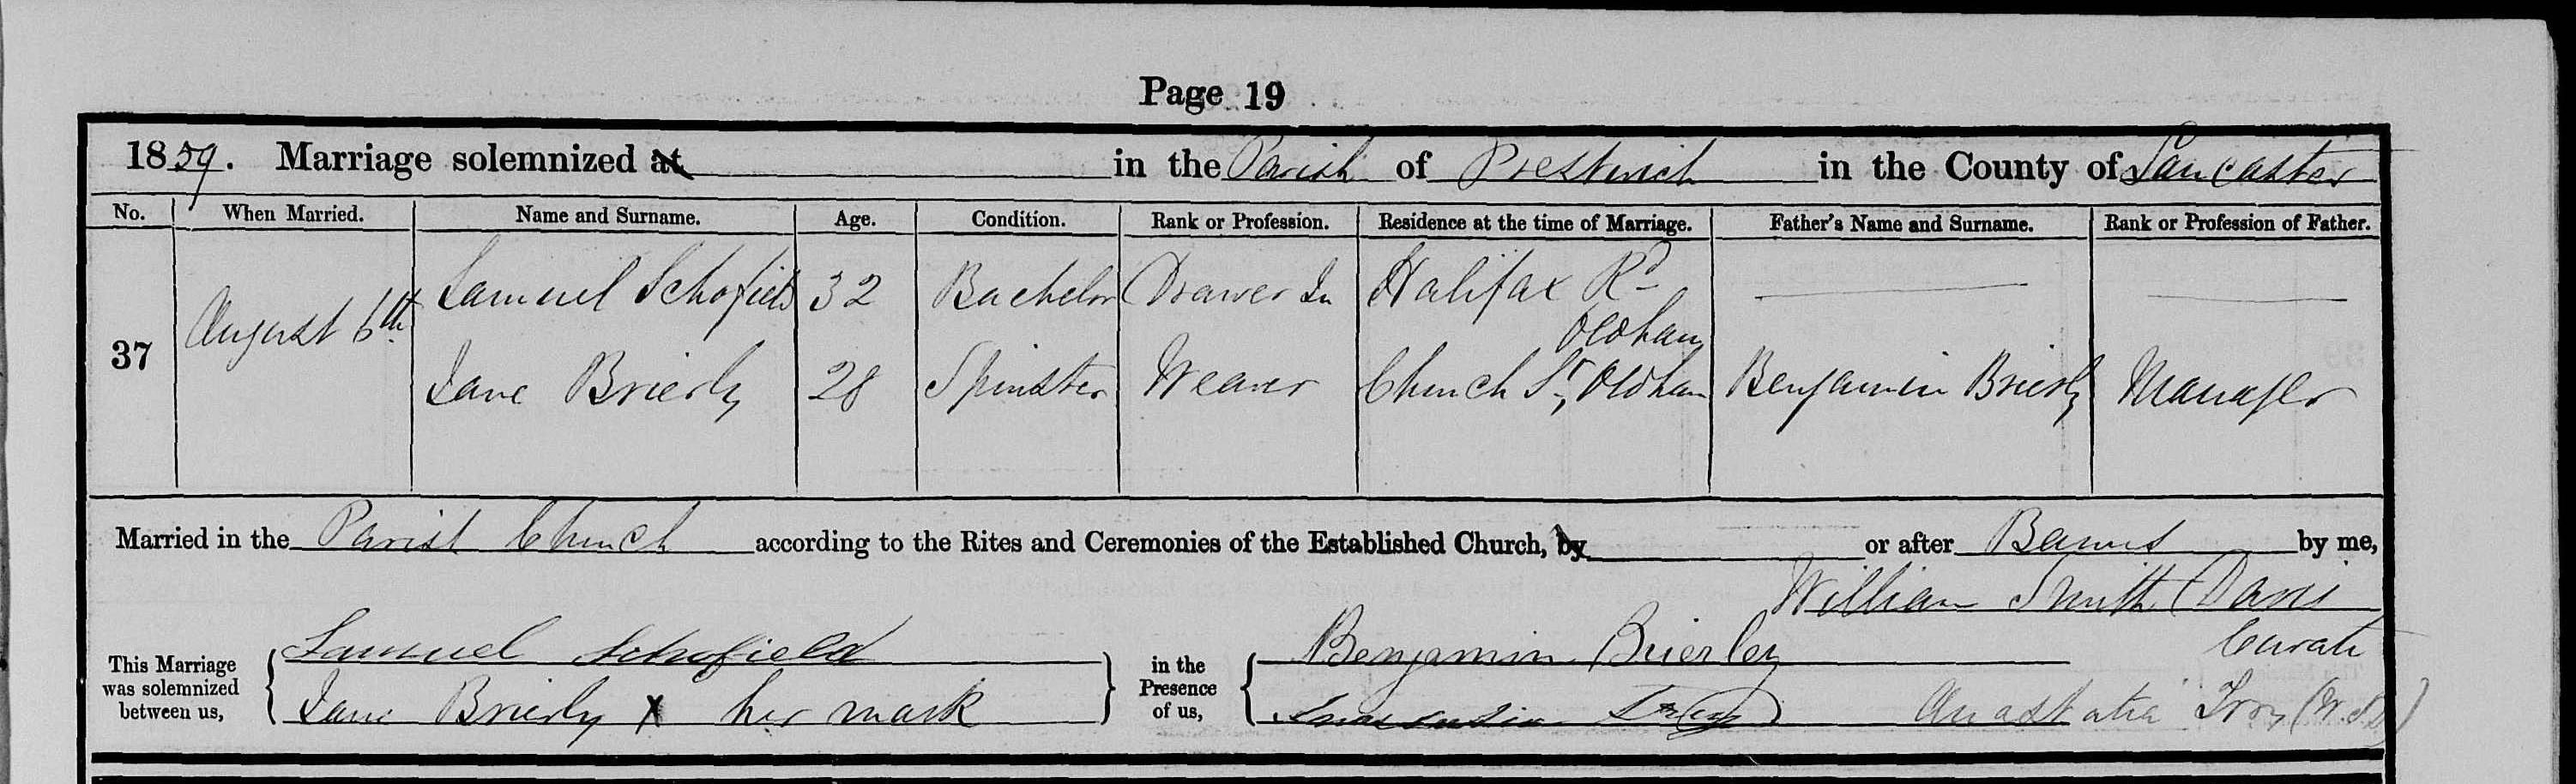 Page 19
1859. Marriage solemnized at in the Parish of Prestwich in the County of Lancaster
No. When Married. Name and Surname. Age. Condition. Rank or Profession. Residence at the time of Marriage. Father's Name and Surname. Rank or Profession of Father.
37 August 6th Samuel Schofield 32 Bachelor Drawer In Halifax Rd Oldham
Jane Brierly 28 Spinster Weaver Church St, Oldham Benjamin Brierly Manager
Married in the Parish Church according to the Rites and Ceremonies of the Established Church, by or after Banns by me,
William Smith Davis
Curate
This Marriage was solemnized between us,
Samuel Schofield
Jane Brierly X her mark
in the Presence of us,
Benjamin Brierley
Anastatia